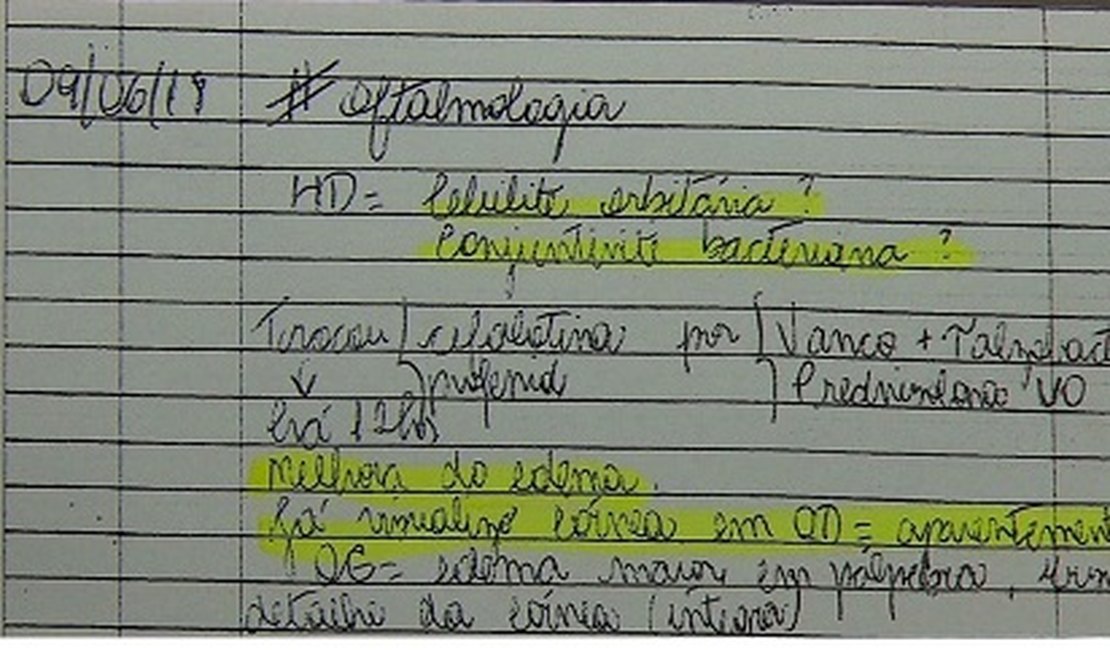 09/06/18 # oftalmologia
HD = Celulite orbitária ?
Conjuntivite bacteriana ?
Trocou cefalotina por Vanco + Tazobact
↓ profenid Prednisolona VO
há 12hs
Melhora do edema.
Já visualizo córnea em OD = aparentement
OE = edema maior em pálpebra,
detalhe da córnea (íntegra)